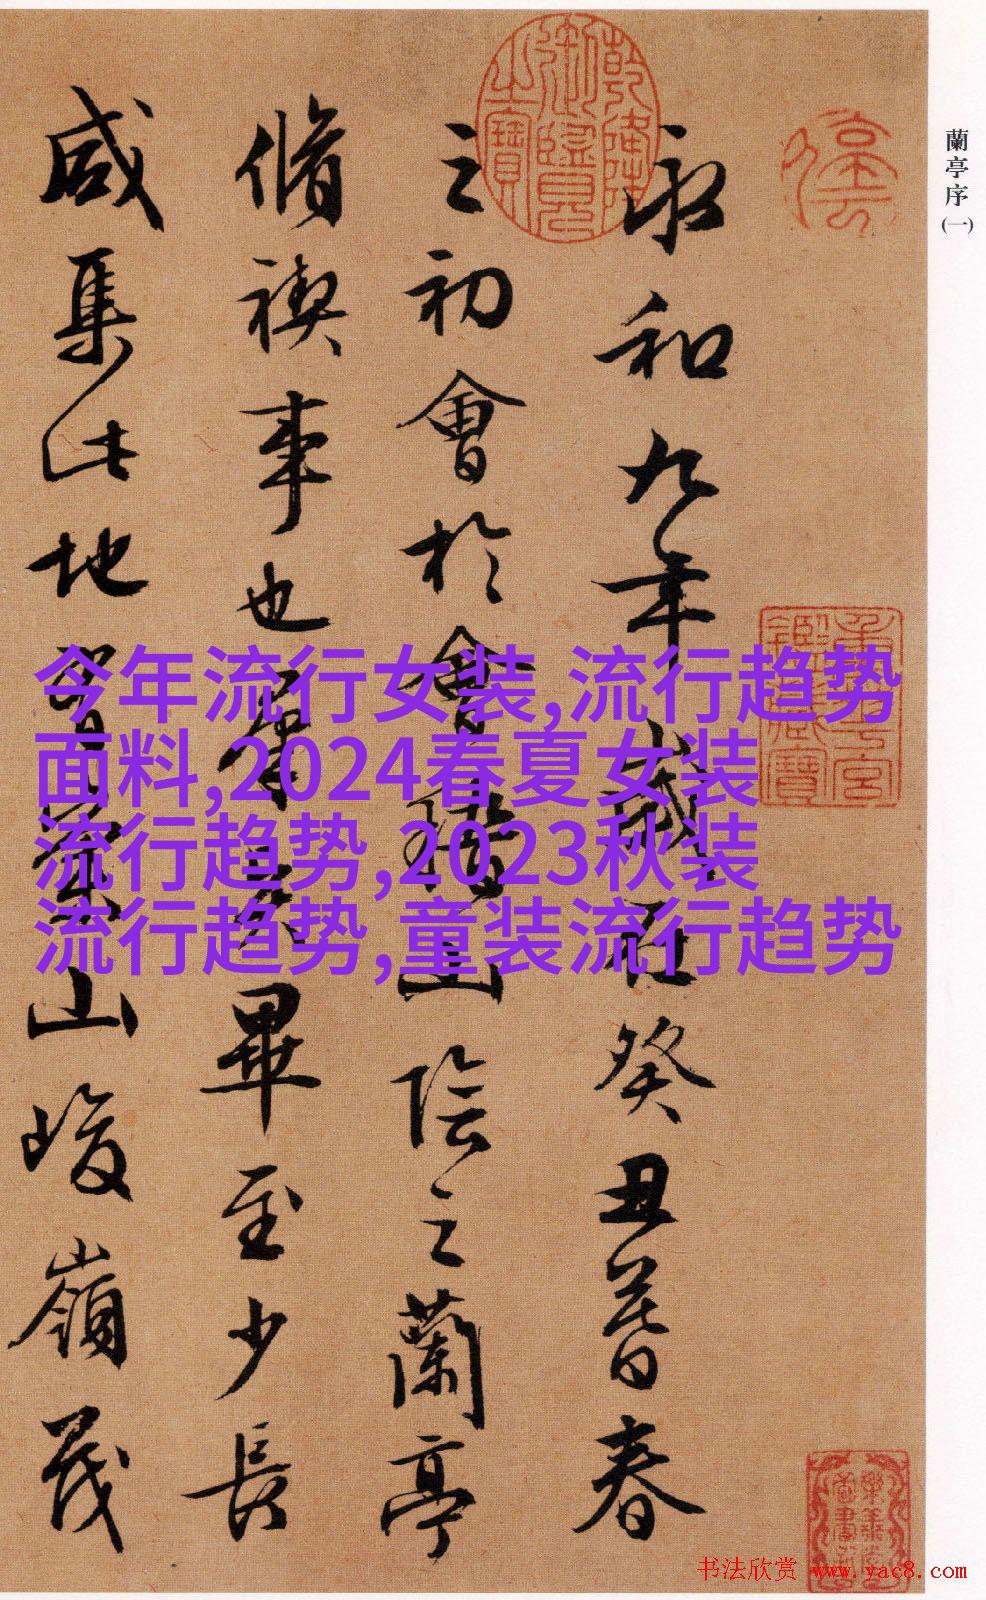 蘭亭序(一)
永和九年歲在癸丑暮春
之初會於會稽山陰之蘭亭
脩禊事也羣賢畢至少長
咸集此地有崇山峻嶺茂
乾隆御覽之寶
今年流行女装,流行趋势
面料,2024春夏女装
流行趋势,2023秋装
流行趋势,童装流行趋势
书法欣赏 www.yac8.com